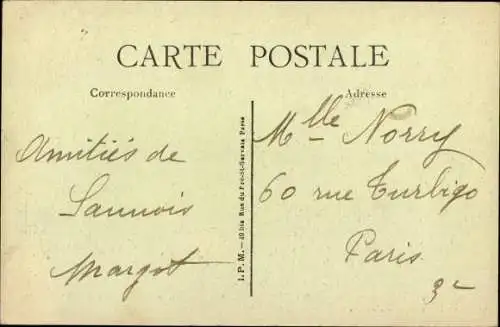 CARTE POSTALE
Correspondance
Adresse
Amitiés de
Sannois
Margot
I.P.M.—49 bis Rue du Pré-St-Gervais Paris
Mlle Norry
60 rue Turbigo
Paris
3e